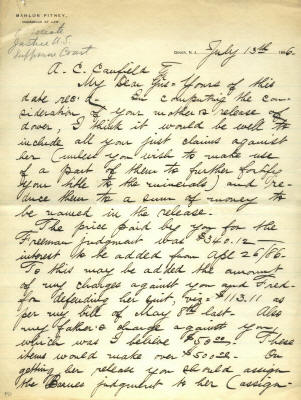 MAHLON PITNEY,
COUNSELLOR AT LAW
Justice U.S.
Supreme Court
DOVER, N. J., July 13th 1886.
A. C. Canfield Esq
My Dear Sir - Yours of this
date rec'd - In computing the con-
sideration of your mother's release of
dower, I think it would be well to
include all your just claims against
her (unless you wish to make use
of a part of them to further fortify
your title to the minerals) and re-
duce them to a sum of money to
be named in the release.
The price paid by you for the
Freeman judgment was $340.12 -
interest to be added from Apl 26/86.
To this may be added the amount
of my charges against you and Fred-
for defending her suit, viz = $113.11 as
per my bill of May 8th last. Also
my father's charge against you,
which was I believe $50.00. These
items would make over $500.00. On
getting her release you should assign
the Barnes judgment to her (assign-